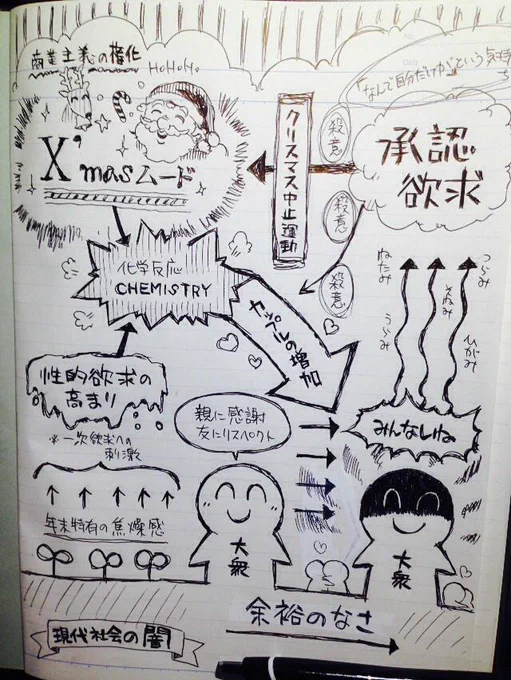 商業主義の権化
HoHoHo
「なんで自分だけが」という気持ち
X'masムード
クリスマス中止運動
殺意
殺意
殺意
承認
欲求
化学反応
CHEMISTRY
カップルの増加
つらみ
ねたみ
そねみ
うらみ
ひがみ
性的欲求の
高まり
※一次欲求への
刺激
親に感謝
友にリスペクト
みんなしね
年末特有の焦燥感
大衆
大衆
余裕のなさ
現代社会の闇